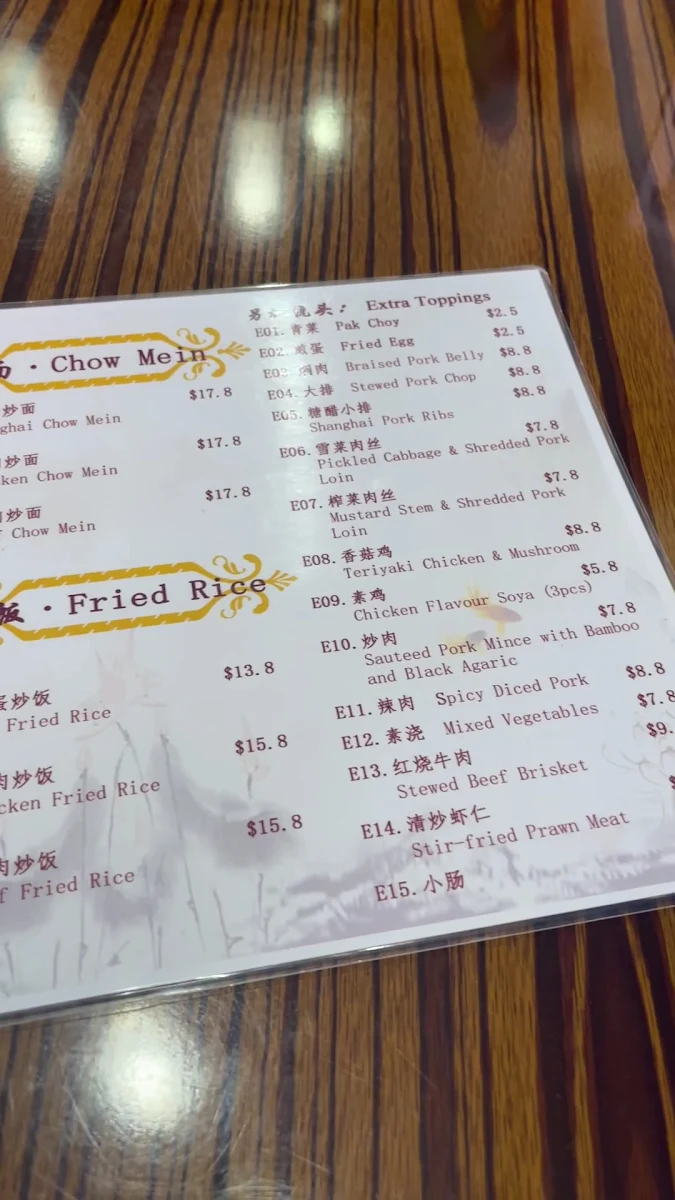 · Chow Mein
炒面 $17.8
ghai Chow Mein
炒面 $17.8
ken Chow Mein
炒面 $17.8
Chow Mein
饭 · Fried Rice
$13.8
蛋炒饭
Fried Rice
$15.8
肉炒饭
cken Fried Rice
$15.8
肉炒饭
f Fried Rice
浇头: Extra Toppings
E01. 青菜 Pak Choy $2.5
E02. 煎蛋 Fried Egg $2.5
E03. 焖肉 Braised Pork Belly $8.8
E04. 大排 Stewed Pork Chop $8.8
E05. 糖醋小排 $8.8
Shanghai Pork Ribs
E06. 雪菜肉丝 $7.8
Pickled Cabbage & Shredded Pork
Loin
E07. 榨菜肉丝 $7.8
Mustard Stem & Shredded Pork
Loin
E08. 香菇鸡 $8.8
Teriyaki Chicken & Mushroom
E09. 素鸡 $5.8
Chicken Flavour Soya (3pcs)
E10. 炒肉 $7.8
Sauteed Pork Mince with Bamboo
and Black Agaric
E11. 辣肉 Spicy Diced Pork $8.8
E12. 素浇 Mixed Vegetables $7.8
E13. 红烧牛肉 $9.
Stewed Beef Brisket
E14. 清炒虾仁 $
Stir-fried Prawn Meat
E15. 小肠